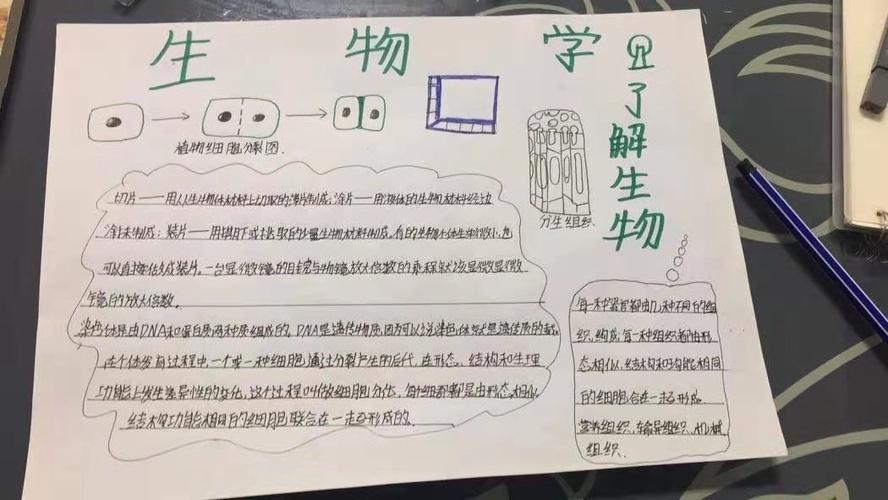 生物学
了解生物
植物细胞分裂图
分生组织
切片——用从生物体材料上切取的薄片制成;涂片——用液体的生物材料经过
涂抹制成;装片——用撕下或挑取的少量生物材料制成。有的生物个体生来微小,也
可以直接做成装片。一台显微镜的目镜与物镜放大倍数的乘积就该显微显微
镜的放大倍数。
染色体是由DNA和蛋白质两种质组成的,DNA是遗传物质,因为可以说染色体就是遗传质的载
在个体发育过程中,一个或一种细胞通过分裂产生的后代,在形态、结构和生理
功能上发生差异性的变化,这个过程叫做细胞分化,每种细都是由形态相似
结构功能相同的细胞联合在一起形成的.
每一种器官都由几种不同的组
织构成,每一种组织都由形
态相似、结构和功能相同
的细胞合在一起形成.
营养组织、输导组织、机械
组织.